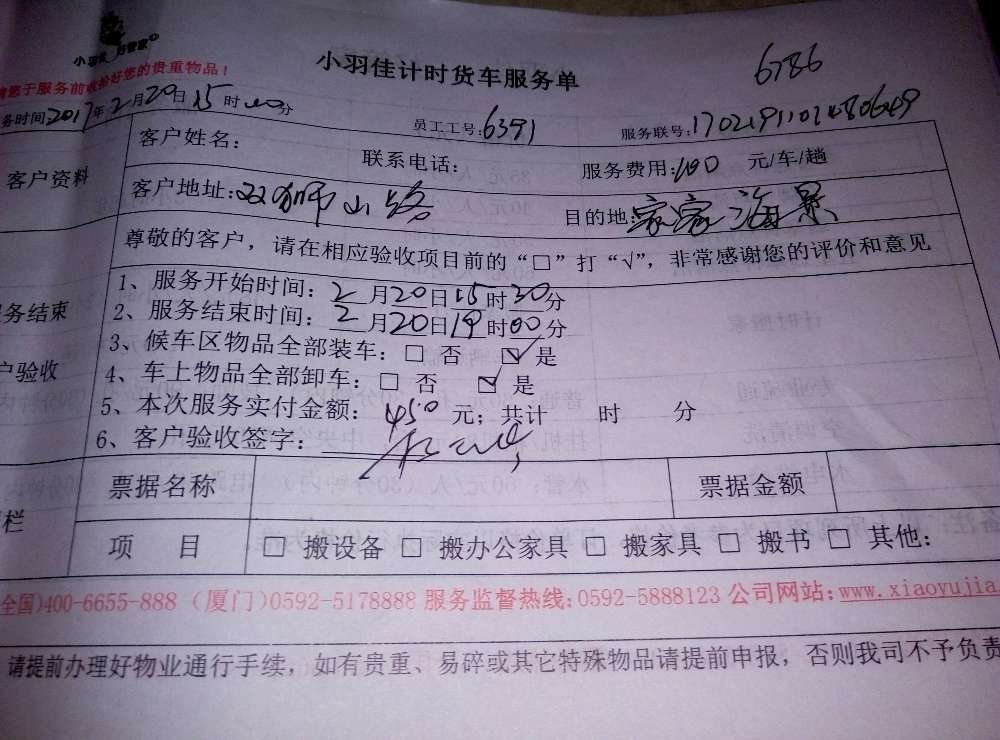 小羽佳 好管家
小羽佳计时货车服务单
6786
请您于服务前收拾好您的贵重物品！
务时间:2017年2月20日15时00分
员工工号:6391
服务联号:1702191101480649
客户资料
客户姓名：
联系电话：
服务费用:100 元/车/趟
客户地址:双狮山路
目的地:家家海景
尊敬的客户，请在相应验收项目前的“□”打“√”，非常感谢您的评价和意见
服务结束
户验收
1、服务开始时间：2月20日15时30分
2、服务结束时间：2月20日19时00分
3、候车区物品全部装车：□ 否 ☑ 是
4、车上物品全部卸车：□ 否 ☑ 是
5、本次服务实付金额：450元；共计 时 分
6、客户验收签字：
栏
票据名称
票据金额
项 目
□ 搬设备 □ 搬办公家具 □ 搬家具 □ 搬书 □ 其他：
全国)400-6655-888 (厦门)0592-5178888 服务监督热线:0592-5888123 公司网站:www.xiaoyujia
请提前办理好物业通行手续，如有贵重、易碎或其它特殊物品请提前申报，否则我司不予负责